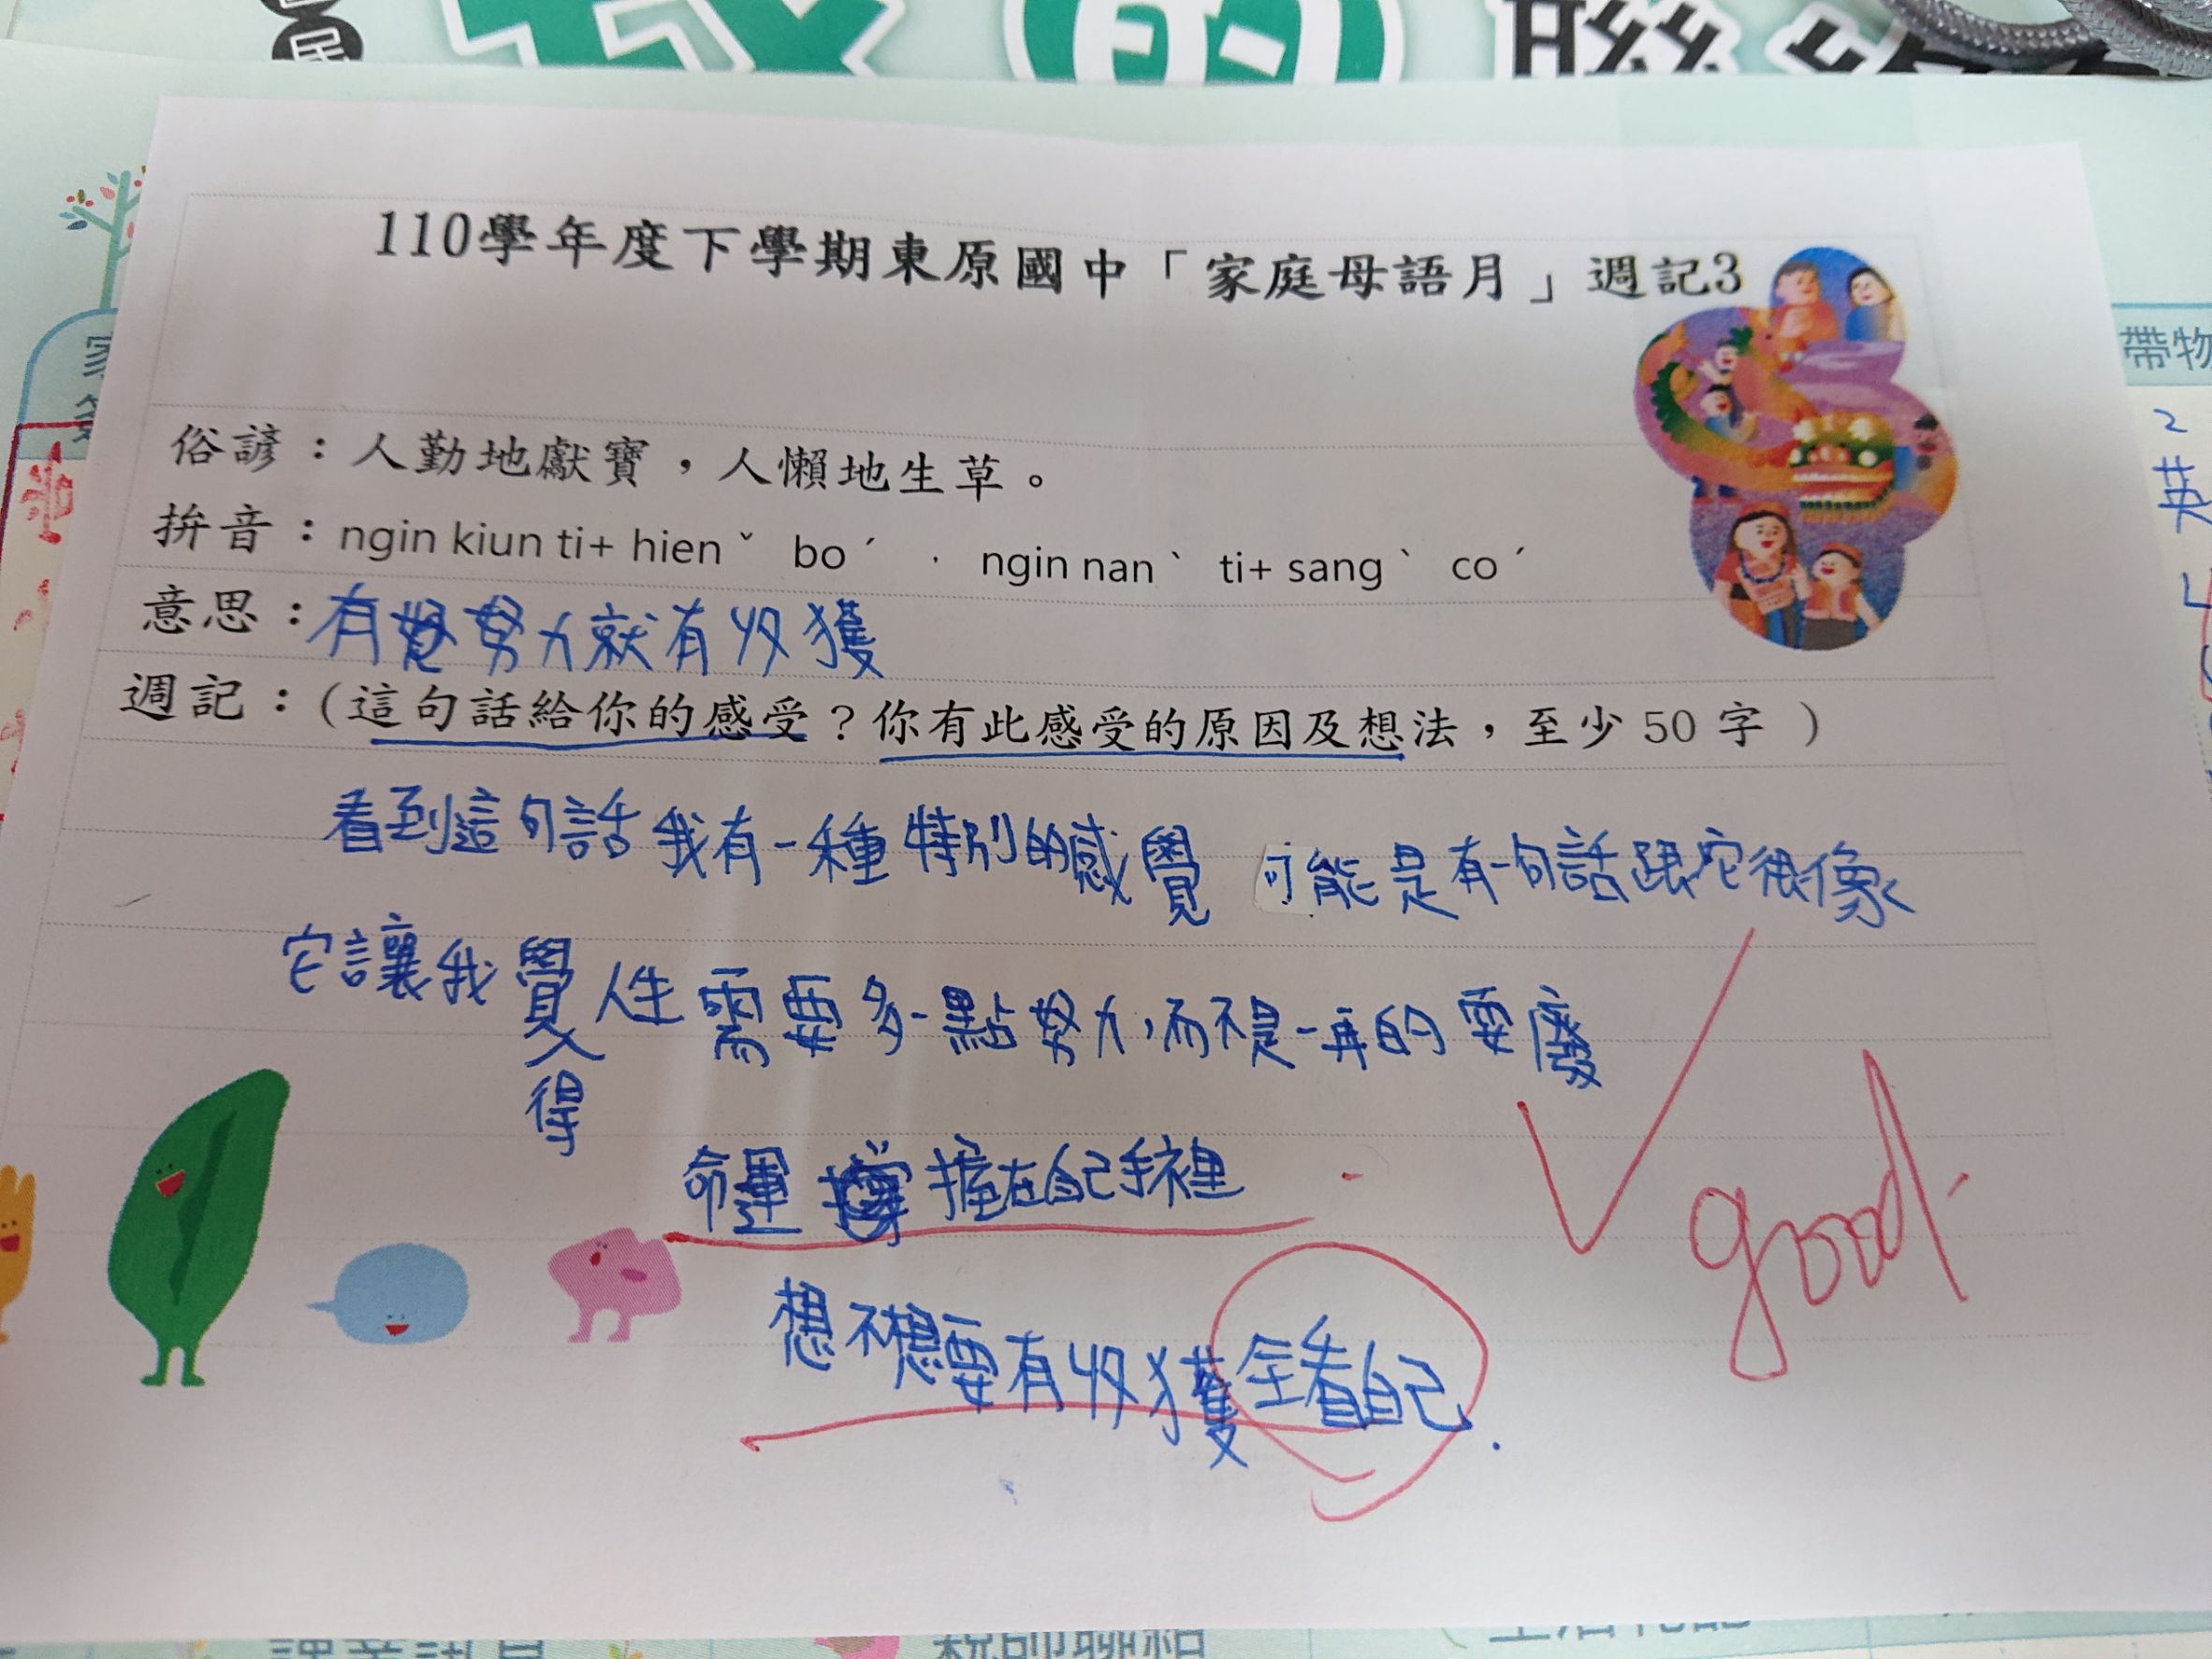 的聯
110學年度下學期東原國中「家庭母語月」週記3
帶物
2
英
俗諺：人勤地獻寶，人懶地生草。
拼音：ngin kiun ti+ hienˇ boˊ ， ngin nanˋ ti+ sangˋ coˊ
意思：有努力就有收獲
週記：(這句話給你的感受？你有此感受的原因及想法，至少 50 字 )
看到這句話我有一種特別的感覺 可能是有一句話跟它很像
它讓我覺得人生需要多一點努力，而不是一再的耍廢
命運 握在自己手裡
想不想要有收獲全看自己.
good
親師聯絡